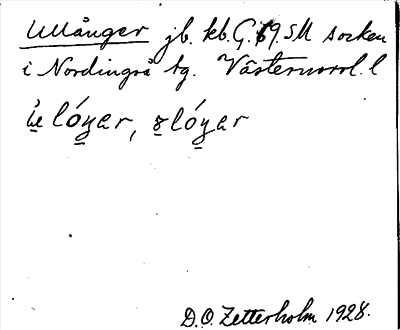 Ullånger jb. kb. G. 69. SM socken
i Nordingrå tg. Västernorrl. l
lóŋar, lóŋar
D.O. Zetterholm 1928.